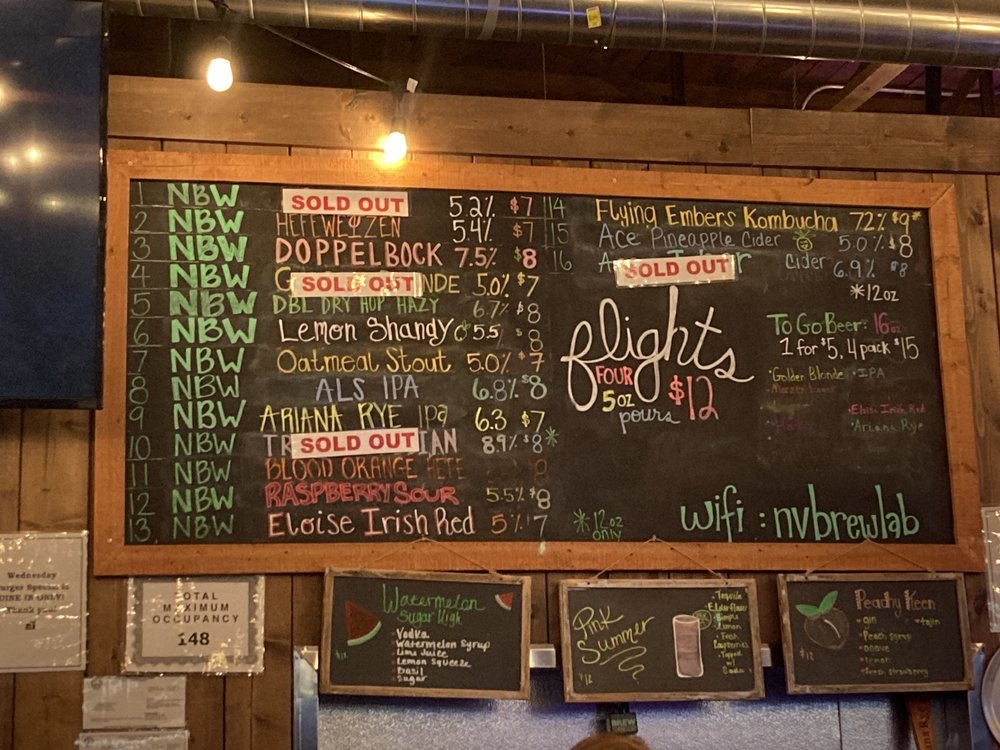 1 NBW SOLD OUT 5.2% $7
2 NBW HEFEWEIZEN 5.4% $7
3 NBW DOPPELBOCK 7.5% $8
4 NBW G SOLD OUT NDE 5.0% $7
5 NBW DBL DRY HOP HAZY 6.7% $8
6 NBW Lemon Shandy 5.5 $8
7 NBW Oatmeal Stout 5.0% $7
8 NBW ALS IPA 6.8% $8
9 NBW ARIANA RYE IPA 6.3 $7
10 NBW TR SOLD OUT IAN 8.9% $8*
11 NBW BLOOD ORANGE HEFE 8
12 NBW RASPBERRY SOUR 5.5% $8
13. NBW Eloise Irish Red 5% $7
*12oz only
14 Flying Embers Kombucha 7.2% $9*
15 Ace Pineapple Cider 5.0% $8
16 SOLD OUT Cider 6.9% $8
*12oz
flights
FOUR
5oz
pours
$12
To Go Beer: 16oz
1 for $5, 4 pack $15
•Golden Blonde •IPA
•Eloise Irish Red
•Ariana Rye
wifi: nvbrewlab
Wednesday
Burger Special is
DINE IN ONLY!
Thank you!
TOTAL
MAXIMUM
OCCUPANCY
148
Watermelon
Sugar High
• Vodka
• Watermelon Syrup
• Lime Juice
• Lemon Squeeze
• Basil
• Sugar
$12
Pink
Summer
$12
• Tequila
• Elderflower
• Simple
• Lemon
• Fresh
Raspberries
• Topped
w/
Soda
Peachy Keen
• gin
• Peach syrup
• lemon
• fresh strawberry
• tajin
$12
BREW